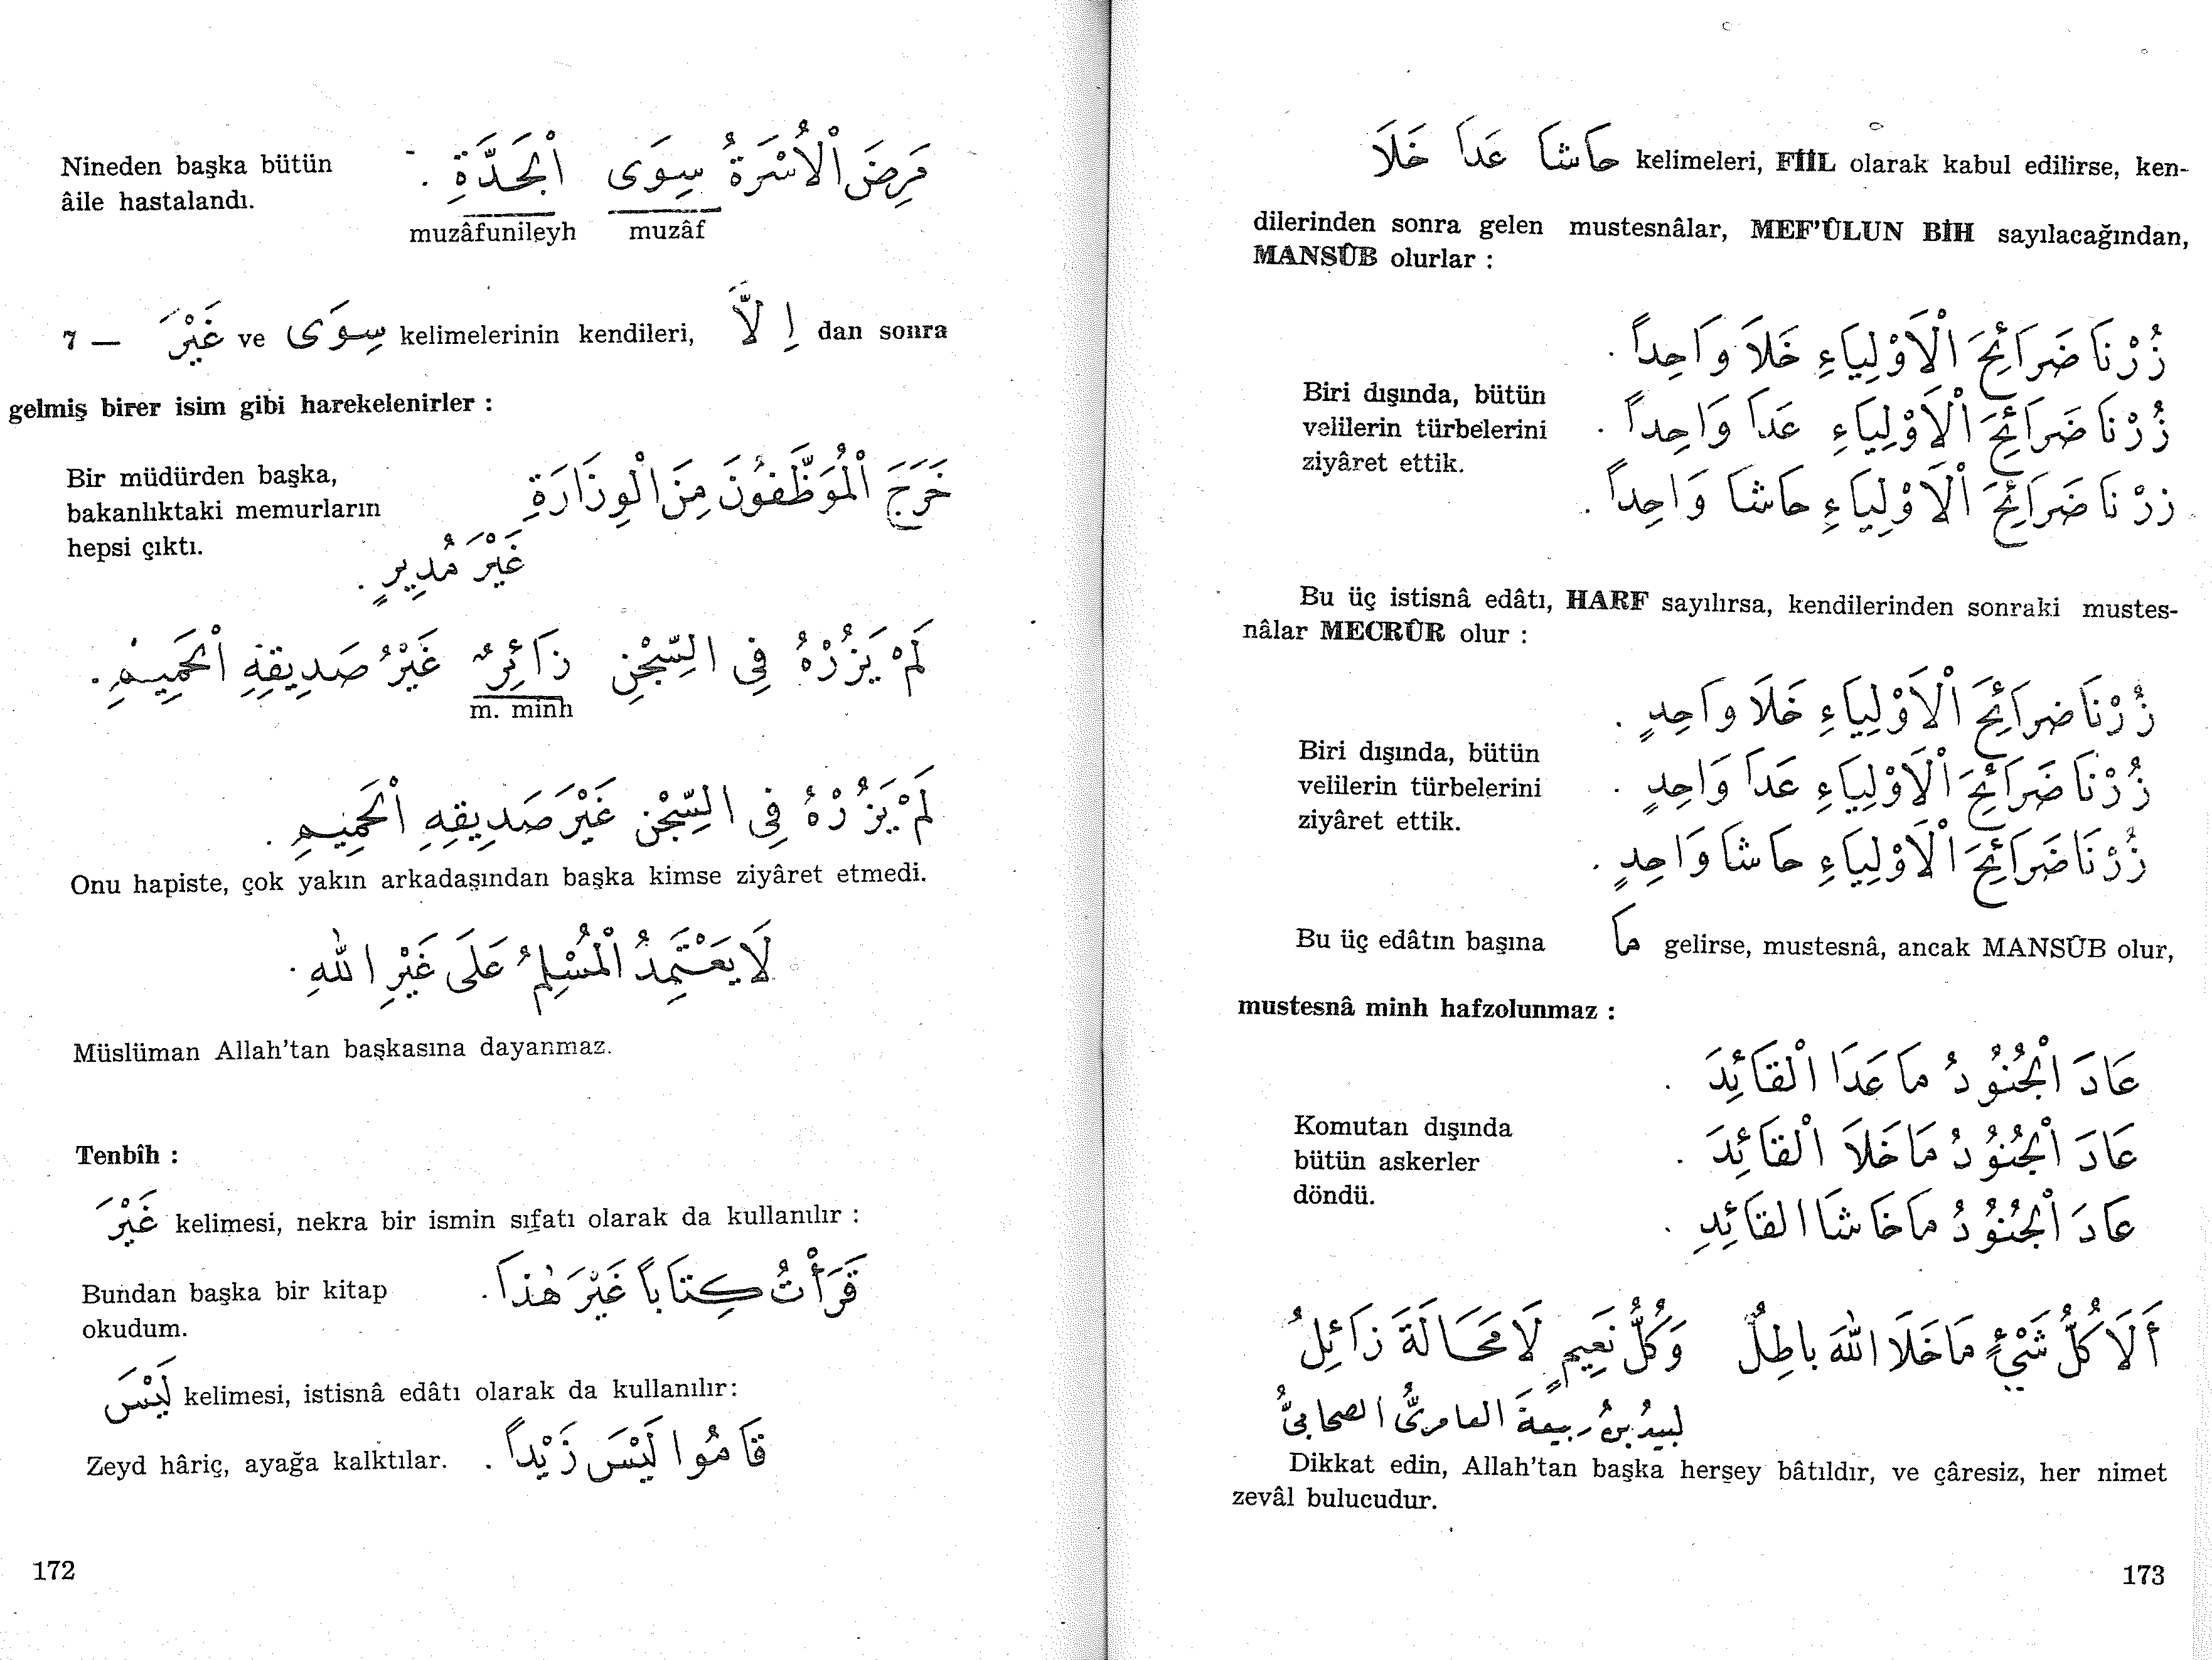 Nineden başka bütün مَرِضَ اْلأُسْرَةُ سِوَى اْلجَدَّةِ .
âile hastalandı.
muzâfunileyh muzâf
7 — غَيْرَ ve سِوَى kelimelerinin kendileri, إِلاَّ dan sonra
gelmiş birer isim gibi harekelenirler :
Bir müdürden başka, خَرَجَ اْلمُوَظَّفُونَ مِنَ اْلوِزَارَةِ
bakanlıktaki memurların
hepsi çıktı. غَيْرَ مُدِيرٍ .
لَمْ يَزُرْهُ فِى السِّجْنِ زَائِرٌ غَيْرُ صَدِيقِهِ اْلحَمِيمِ .
m. minh
لَمْ يَزُرْهُ فِى السِّجْنِ غَيْرَ صَدِيقِهِ اْلحَمِيمِ .
Onu hapiste, çok yakın arkadaşından başka kimse ziyâret etmedi.
لَا يَعْتَمِدُ اْلمُسْلِمُ عَلَى غَيْرِ اللهِ .
Müslüman Allah'tan başkasına dayanmaz.
Tenbîh :
غَيْرَ kelimesi, nekra bir ismin sıfatı olarak da kullanılır :
Bundan başka bir kitap قَرَأْتُ كِتَاباً غَيْرَ هٰذَا .
okudum.
لَيْسَ kelimesi, istisnâ edâtı olarak da kullanılır:
Zeyd hâriç, ayağa kalktılar. قَامُوا لَيْسَ زَيْداً .
172
حَاشَا عَدَا خَلَا kelimeleri, FİİL olarak kabul edilirse, ken-
dilerinden sonra gelen mustesnâlar, MEF'ÛLUN BİH sayılacağından,
MANSÛB olurlar :
زُرْنَا ضَرَائِحَ اْلأَوْلِيَاءِ خَلَا وَاحِداً .
Biri dışında, bütün
velilerin türbelerini زُرْنَا ضَرَائِحَ اْلأَوْلِيَاءِ عَدَا وَاحِداً .
ziyâret ettik.
زرْنَا ضَرَائِحَ اْلأَوْلِيَاءِ حَاشَا وَاحِداً .
Bu üç istisnâ edâtı, HARF sayılırsa, kendilerinden sonraki mustes-
nâlar MECRÛR olur :
زُرْنَا ضَرَائِحَ اْلأَوْلِيَاءِ خَلَا وَاحِدٍ .
Biri dışında, bütün
velilerin türbelerini زُرْنَا ضَرَائِحَ اْلأَوْلِيَاءِ عَدَا وَاحِدٍ .
ziyâret ettik.
زُرْنَا ضَرَائِحَ اْلأَوْلِيَاءِ حَاشَا وَاحِدٍ .
Bu üç edâtın başına مَا gelirse, mustesnâ, ancak MANSÛB olur,
mustesnâ minh hafzolunmaz :
عَادَ اْلجُنُودُ مَا عَدَا اْلقَائِدَ .
Komutan dışında
bütün askerler عَادَ اْلجُنُودُ مَا خَلَا اْلقَائِدَ .
döndü.
عَادَ اْلجُنُودُ مَا خَاشَا القَائِدِ .
أَلَا كُلُّ شَيْءٍ مَا خَلَا اللهَ بَاطِلٌ وَكُلُّ نَعِيمٍ لَا مَحَالَةَ زَائِلُ
لبيدُ بنُ ربيعةَ العامرىُّ الصحابىُّ
Dikkat edin, Allah'tan başka herşey bâtıldır, ve çâresiz, her nimet
zevâl bulucudur.
173